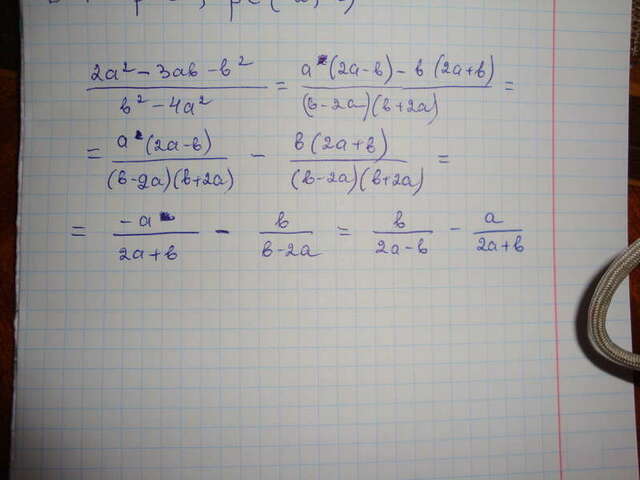 (2a² - 3ab - b²)/(b² - 4a²) = (a(2a-b) - b(2a+b))/((b-2a)(b+2a)) =
= (a(2a-b))/((b-2a)(b+2a)) - (b(2a+b))/((b-2a)(b+2a)) =
= (-a)/(2a+b) - b/(b-2a) = b/(2a-b) - a/(2a+b)